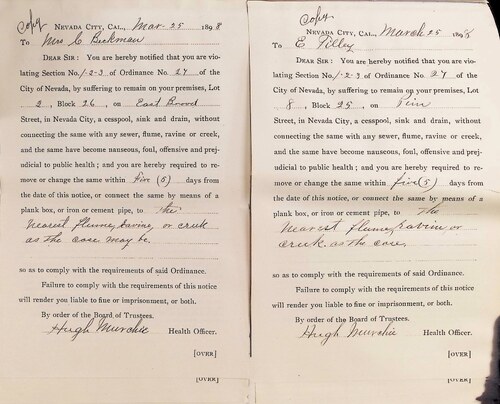 Copy
NEVADA CITY, CAL., Mar 25 1898
To Mrs C Beckman
DEAR SIR: You are hereby notified that you are vio-
lating Section No. 1-2-3 of Ordinance No. 27 of the
City of Nevada, by suffering to remain on your premises, Lot
2, Block 26, on East Broad
Street, in Nevada City, a cesspool, sink and drain, without
connecting the same with any sewer, flume, ravine or creek,
and the same have become nauseous, foul, offensive and prej-
udicial to public health; and you are hereby required to re-
move or change the same within five (5) days from
the date of this notice, or connect the same by means of a
plank box, or iron or cement pipe, to the
nearest flume, ravine, or creek
as the case may be.
so as to comply with the requirements of said Ordinance.
Failure to comply with the requirements of this notice
will render you liable to fine or imprisonment, or both.
By order of the Board of Trustees.
Hugh Murchie Health Officer.
[OVER]
[OVER]
Copy
NEVADA CITY, CAL., March 25 1898
To E Tilley
DEAR SIR: You are hereby notified that you are vio-
lating Section No. 1-2-3 of Ordinance No. 27 of the
City of Nevada, by suffering to remain on your premises, Lot
8, Block 25, on Pine
Street, in Nevada City, a cesspool, sink and drain, without
connecting the same with any sewer, flume, ravine or creek,
and the same have become nauseous, foul, offensive and prej-
udicial to public health; and you are hereby required to re-
move or change the same within five (5) days from
the date of this notice, or connect the same by means of a
plank box, or iron or cement pipe, to the
nearest flume, ravine or
creek. as the case
so as to comply with the requirements of said Ordinance.
Failure to comply with the requirements of this notice
will render you liable to fine or imprisonment, or both.
By order of the Board of Trustees.
Hugh Murchie Health Officer.
[OVER]
[OVER]